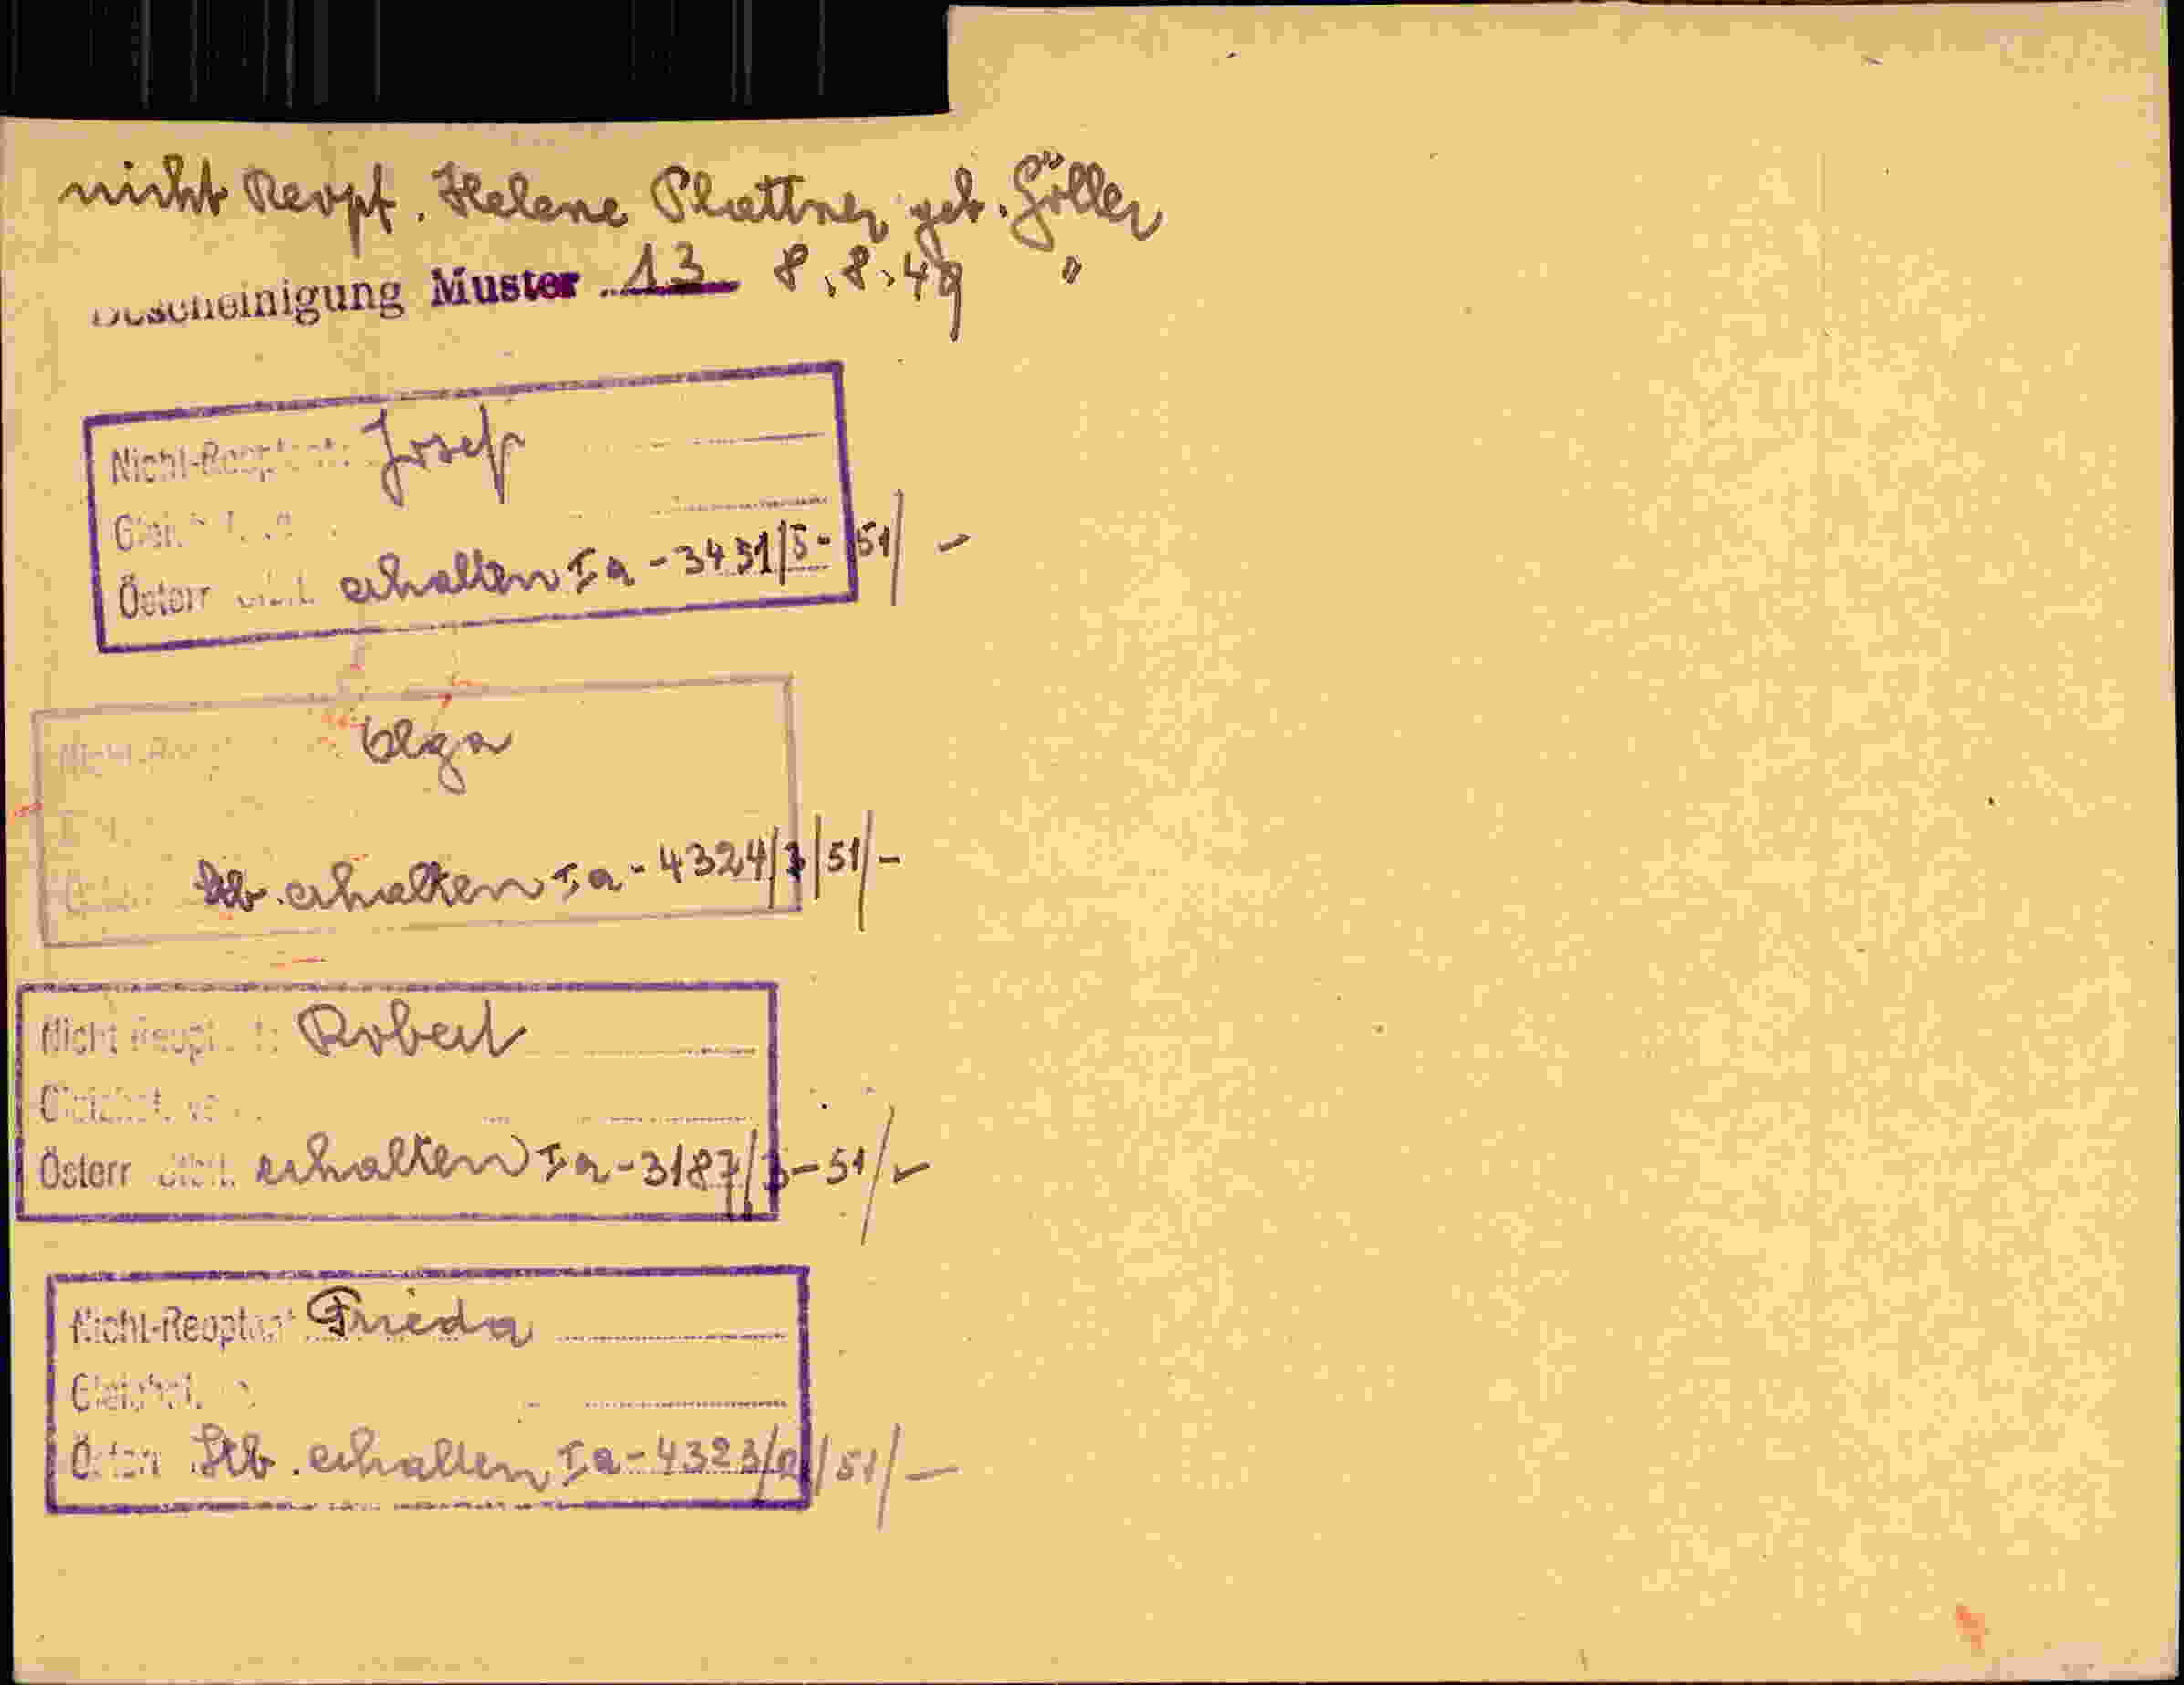 nicht Reopt. Helene Plattner geb. Göller
Bescheinigung Muster 13 8.8.49 "
Nicht-Reoptant: Josef
Österr. erhalten Ia-3431/5-51/-
Olga
Stb. erhalten Ia-4324/ /51/-
Nicht Reoptant: Robert
Österr. Stb. erhalten Ia-3187/3-51/-
Nicht-Reoptant Frieda
Gleichst.
Österr Stb. erhalten Ia-4323/ /51/-